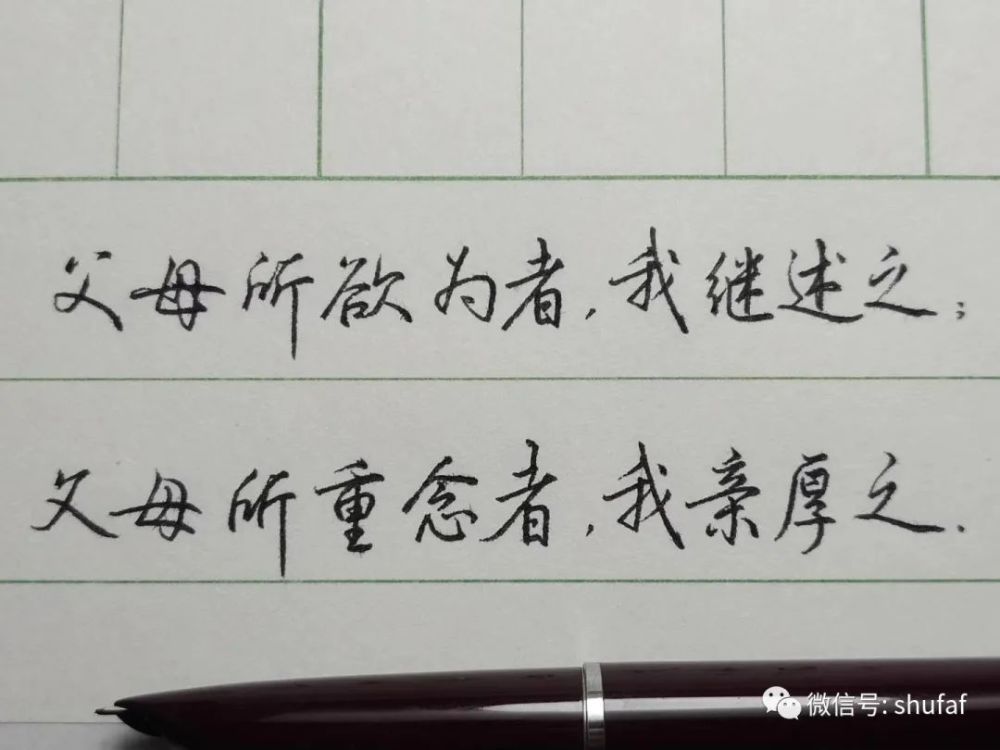 父母所欲为者,我继述之;
父母所重念者,我亲厚之.
微信号: shufaf